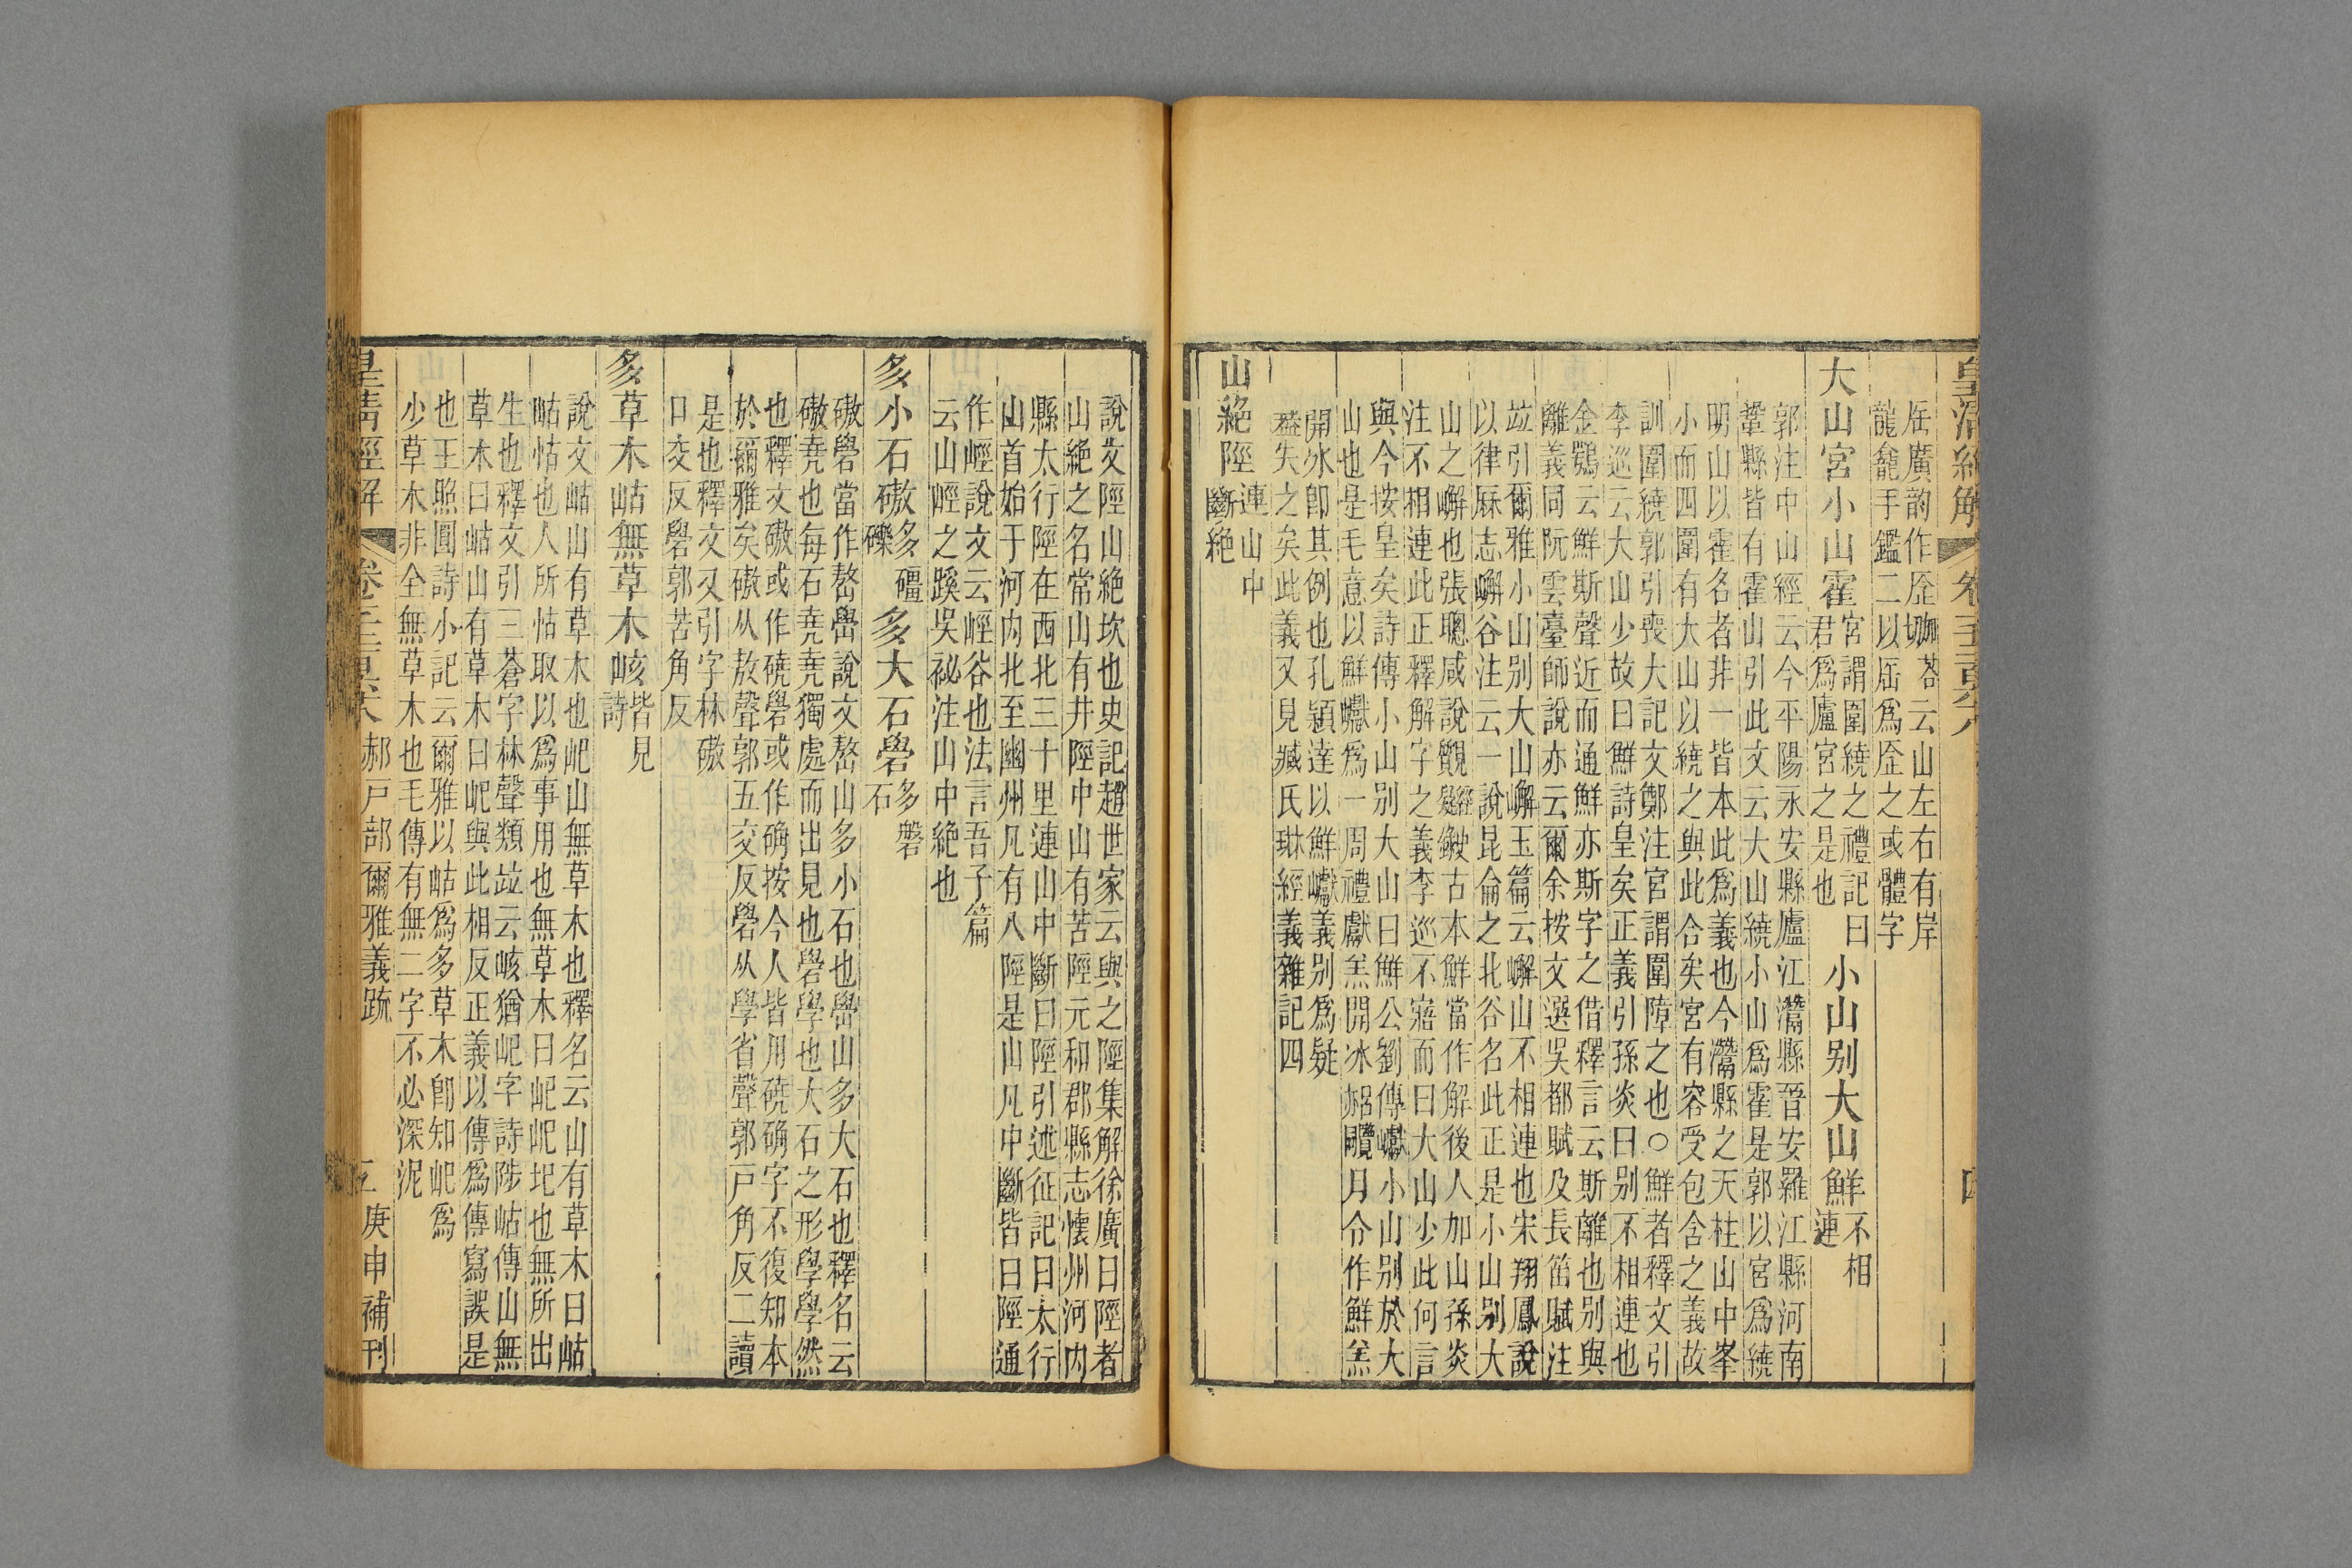 厓廣韵作㕒𡶏㟷云山左右有岸
龍龕手鑑二以厓爲㕒之或體字
大山宮小山霍宮謂圍繞之禮記曰
君爲廬宮之是也小山别大山鮮不相
連
郭注中山經云今平陽永安縣廬江灊縣晉安羅江縣河南
鞏縣皆有霍山引此文云大山繞小山爲霍是郭以宮爲繞
明山以霍名者非一皆本此爲義也今灊縣之天柱山中峯
小而四圍有大山以繞之與此合矣宮有容受包含之義故
訓圍繞郭引喪大記文鄭注宮謂圍障之也○鮮者釋文引
李巡云大山少故曰鮮詩皇矣正義引孫炎曰别不相連也
金鶚云鮮斯聲近而通鮮亦斯字之借釋言云斯離也别與
離義同阮雲臺師說亦云爾余按文選吳都賦及長笛賦注
竝引爾雅小山别大山嶰玉篇云嶰山不相連也宋翔鳳說
以律厤志嶰谷注云一說昆侖之北谷名此正是小山别大
山之嶰也張聰咸說觀經鮅古本鮮當作解後人加山孫炎
注不相連此正釋解字之義李巡不寤而曰大山少此何言
與今按皇矣詩傳小山别大山曰鮮公劉傳巘小山别於大
山也是毛意以鮮巘爲一周禮獻羔開冰月令作鮮羔
開冰卽其例也孔頴達以鮮巘義别爲疑
葢失之矣此義又見臧氏琳經義雜記四
山絶陘連山中
斷絶
說文陘山絶坎也史記趙世家云與之陘集解徐廣曰陘者
山絶之名常山有井陘中山有苦陘元和郡縣志懷州河内
縣太行陘在西北三十里連山中斷曰陘引述征記曰太行
山首始于河内北至幽州凡有八陘是山凡中斷皆曰陘通
作𡷨說文云𡷨谷也法言吾子篇
云山𡷨之蹊吳祕注山中絶也
多小石磝多礓
礫多大石礐多磐
石
磝礐當作嶅嶨說文嶅山多小石也嶨山多大石也釋名云
磝堯也每石堯堯獨處而出見也礐學也大石之形學學然
也釋文磝或作磽礐或作确按今人皆用磽确字不復知本
於爾雅矣磝从敖聲郭五交反礐从學省聲郭戸角反二讀
是也釋文又引字林磝
口交反礐郭苦角反
多草木岵無草木峐皆見
詩
說文岵山有草木也屺山無草木也釋名云山有草木曰岵
岵怙也人所怙取以爲事用也無草木曰屺屺圮也無所出
生也釋文引三蒼字林聲類竝云峐猶屺字詩陟岵傳山無
草木曰岵山有草木曰屺與此相反正義以傳爲傳寫誤是
也王照圓詩小記云爾雅以岵爲多草木卽知屺爲
少草木非全無草木也毛傳有無二字不必深泥
皇淸經解 郝戸部爾雅義疏 五 庚申補刊